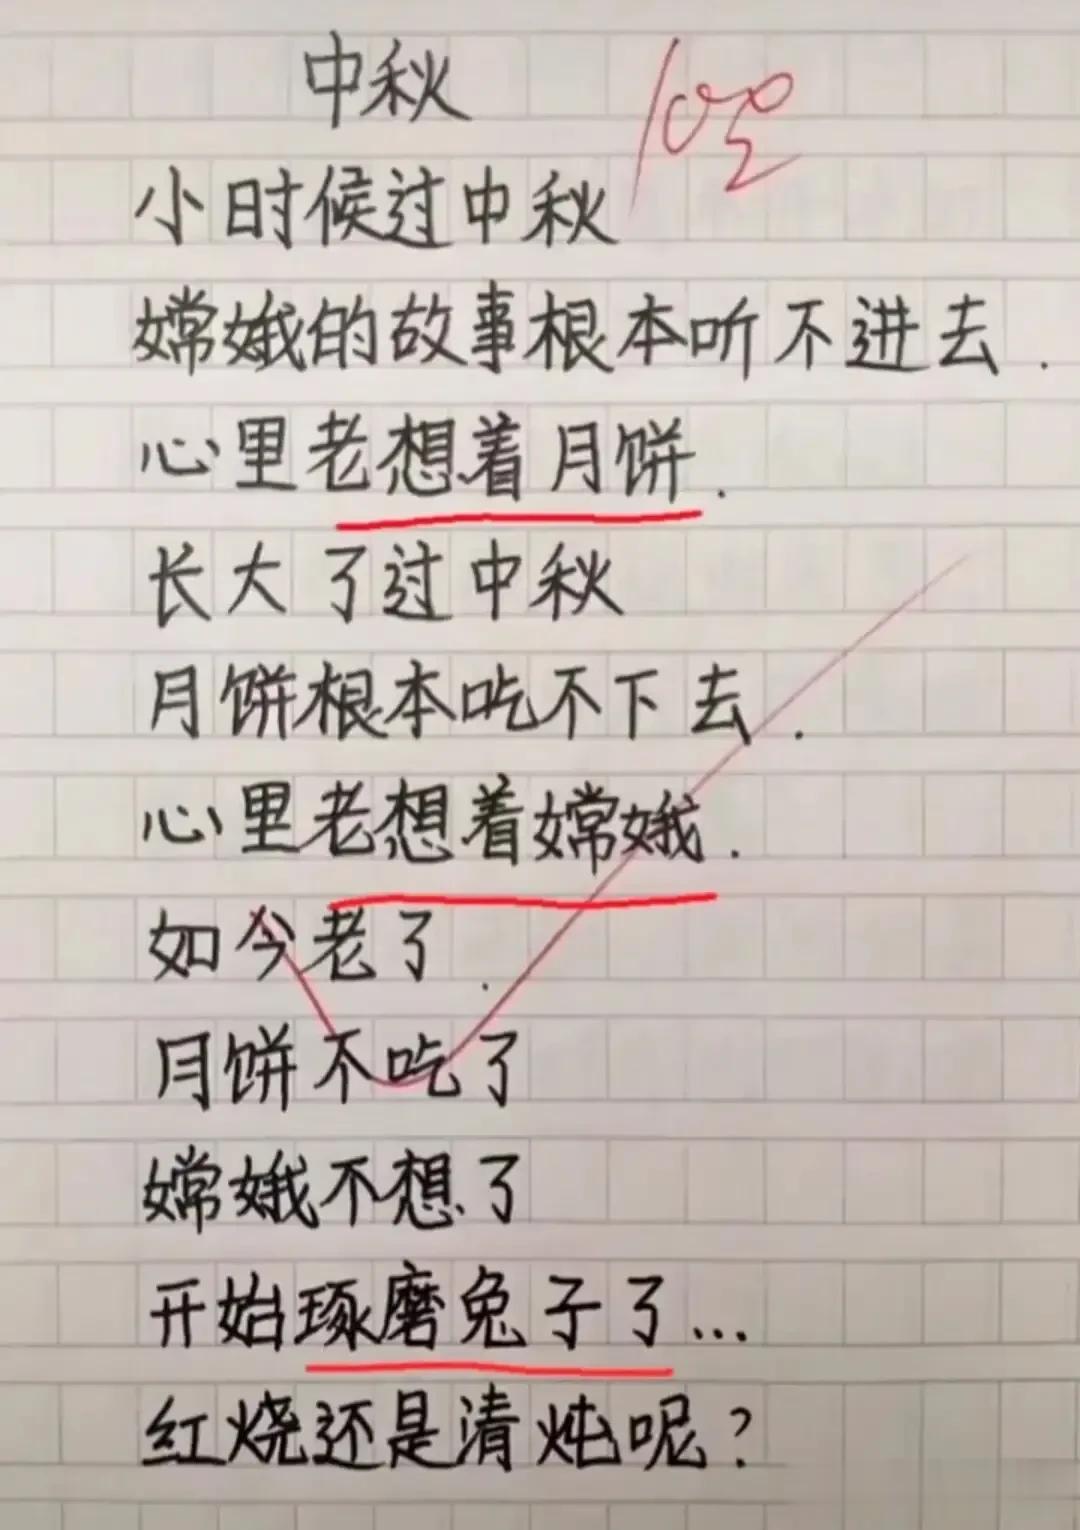 中秋
100
小时候过中秋
嫦娥的故事根本听不进去.
心里老想着月饼.
长大了过中秋
月饼根本吃不下去.
心里老想着嫦娥.
如今老了.
月饼不吃了
嫦娥不想了
开始琢磨兔子了...
红烧还是清炖呢?